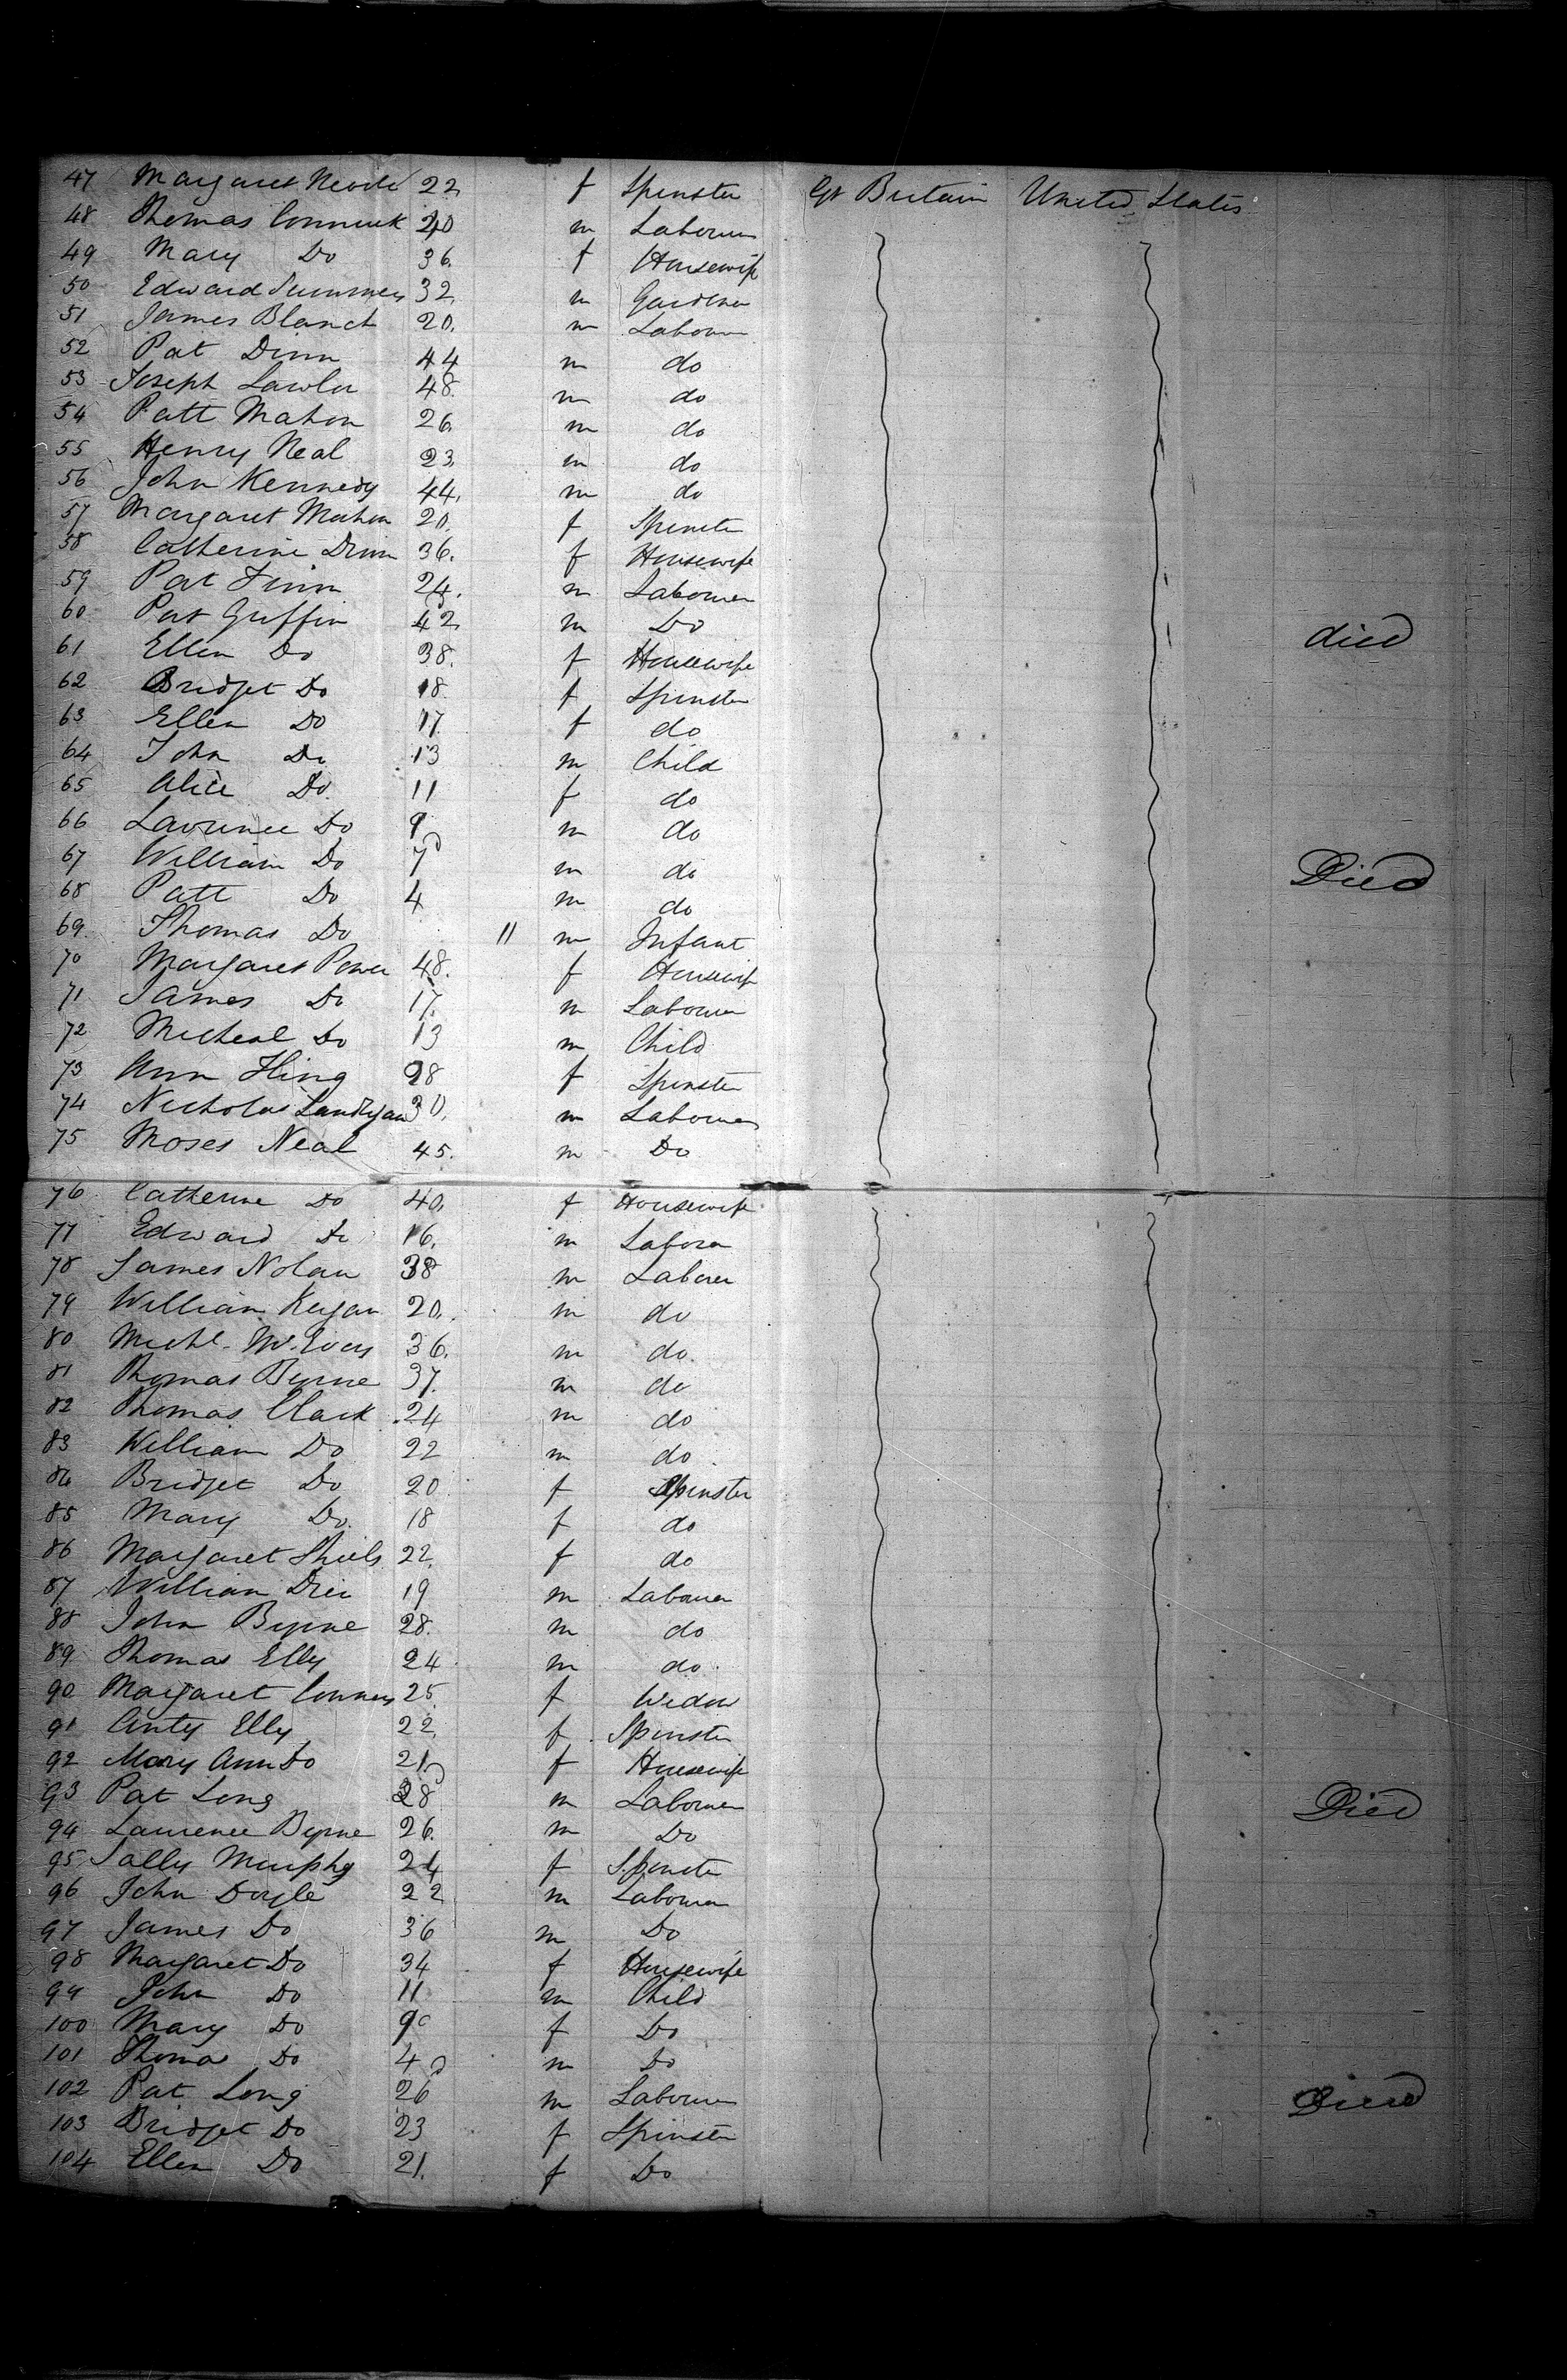 47 Margaret 22 f Spinster Gt Britain United States
48 Thomas 40 m Labourer
49 Mary Do 36. f Housewife
50 Edward Summers 32 m Gardener
51 James Blanch 20. m Labourer
52 Pat Dinn 44 m do
53 Joseph Lawlor 48. m do
54 Patt Mahon 26. m do
55 Henry Neal 23. m do
56 John Kennedy 44. m do
57 Margaret Mahon 20. f Spinster
58 Catherine Dinn 36. f Housewife
59 Pat Finn 24. m Labourer
60 Pat Griffin 42 m Do died
61 Ellen Do 38. f Housewife
62 Bridget Do 18. f Spinster
63 Ellen Do 17. f do
64 John Do 13 m Child
65 Alice Do. 11 f do
66 Lawrence Do 9 m do
67 William Do 7 m do Died
68 Patt Do 4 m do
69. Thomas Do 11 m Infant
70 Margaret Power 48. f Housewife
71 James Do 17. m Labourer
72 Micheal Do 13 m Child
73 Ann 28 f Spinster
74 Nicholas Landrgan 30. m Labourer
75 Moses Neal 45. m Do
76 Catherine Do 40. f Housewife
77 Edward Do 16. m Laborer
78 James Nolan 38 m Laborer
79 William Keegan 20. m do
80 Michl. McEvoy 36. m do.
81 Thomas Byrne 37. m do
82 Thomas Clark 24 m do
83 William Do 22 m do.
84 Bridget Do 20 f Spinster
85 Mary Do. 18 f do
86 Margaret Shiels 22. f do
87 William 19 m Labourer
88 John Byrne 28. m do
89 Thomas Elly 24 m do.
90 Margaret Connors 25. f Widow
91 Anty Elly 22. f Spinster
92 Mary Ann Do 21 f Housewife
93 Pat Long 28 m Labourer Died
94 Laurence Byrne 26. m Do
95 Sally Murphy 24 f Spinster
96 John Doyle 22 m Labourer
97 James Do 36 m Do
98 Margaret Do 34 f Housewife
99 John Do 11 m Child
100 Mary Do 9 f Do
101 Thomas Do 4 m Do
102 Pat Long 26 m Labourer Died
103 Bridget Do 23 f Spinster
104 Ellen Do 21. f Do